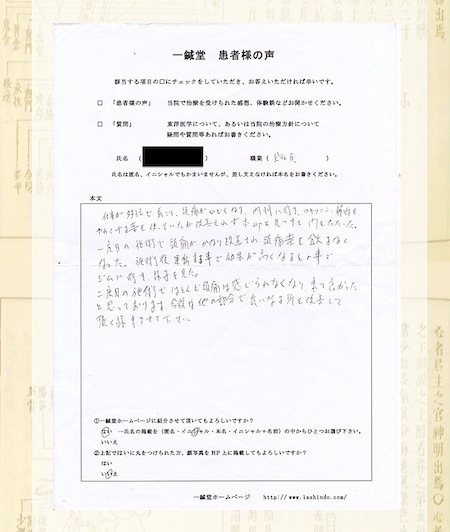 一鍼堂　患者様の声
該当する項目の□にチェックをしていただき、お答えいただければ幸いです。
□　「患者様の声」　当院で治療を受けられた感想、体験談などお聞かせください。
□　「質問」　東洋医学について、あるいは当院の治療方針について
疑問や質問等あればお書きください。
氏名（　　　　）　職業（会社員　　）
氏名は匿名、イニシャルでもかまいませんが、差し支えなければ本名をお書きください。
本文
仕事が多忙で肩こり、頭痛がひどくなり、内科に行き、ロキソニン、筋肉を
やわらげる薬を使っていたが改善もれずネットを見つけて門をたたいた。
一度目の施術で頭痛がかなり改善され頭痛薬を飲まなく
なった。施術後運動する事で効果が高くなるとの事で
ジムに行き、様子を見た。
二度目の施術でほとんど頭痛は感じられなくなり来て良かった
と思っております。今後は他の部分で気になる所を改善して
頂く様させて下さい。
①一鍼堂ホームページに紹介させて頂いてもよろしいですか？
はい　―氏名の掲載を（匿名・イニシャル・本名・イニシャル＋名前）の中からひとつお選び下さい。
いいえ
②上記ではいに丸をつけられた方、顔写真をHP上に掲載してもよろしいですか？
はい
いいえ
一鍼堂ホームページ　http://www.isshindo.com/
心者君主之官神明出焉